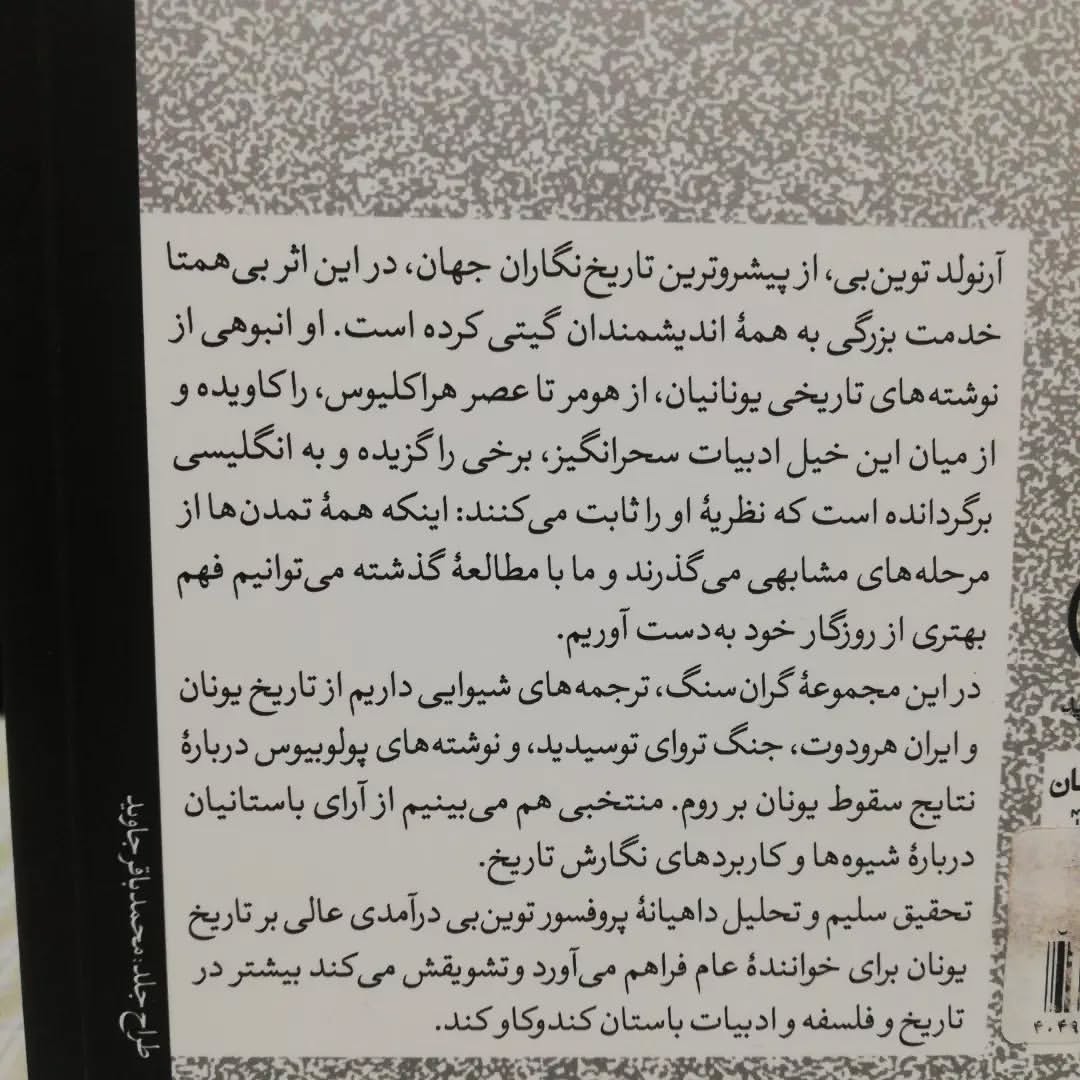 آرنولد توین‌بی، از پیشروترین تاریخ‌نگاران جهان، در این اثر بی‌همتا
خدمت بزرگی به همهٔ اندیشمندان گیتی کرده است. او انبوهی از
نوشته‌های تاریخی یونانیان، از هومر تا عصر هراکلیوس، را کاویده و
از میان این خیل ادبیات سحرانگیز، برخی را گزیده و به انگلیسی
برگردانده است که نظریهٔ او را ثابت می‌کنند: اینکه همهٔ تمدن‌ها از
مرحله‌های مشابهی می‌گذرند و ما با مطالعهٔ گذشته می‌توانیم فهم
بهتری از روزگار خود به‌دست آوریم.
در این مجموعهٔ گران‌سنگ، ترجمه‌های شیوایی داریم از تاریخ یونان
و ایران هرودوت، جنگ تروای توسیدید، و نوشته‌های پولوبیوس دربارهٔ
نتایج سقوط یونان بر روم. منتخبی هم می‌بینیم از آرای باستانیان
دربارهٔ شیوه‌ها و کاربردهای نگارش تاریخ.
تحقیق سلیم و تحلیل داهیانهٔ پروفسور توین‌بی درآمدی عالی بر تاریخ
یونان برای خوانندهٔ عام فراهم می‌آورد و تشویقش می‌کند بیشتر در
تاریخ و فلسفه و ادبیات باستان کندوکاو کند.
طراح جلد: محمدباقر جاوید